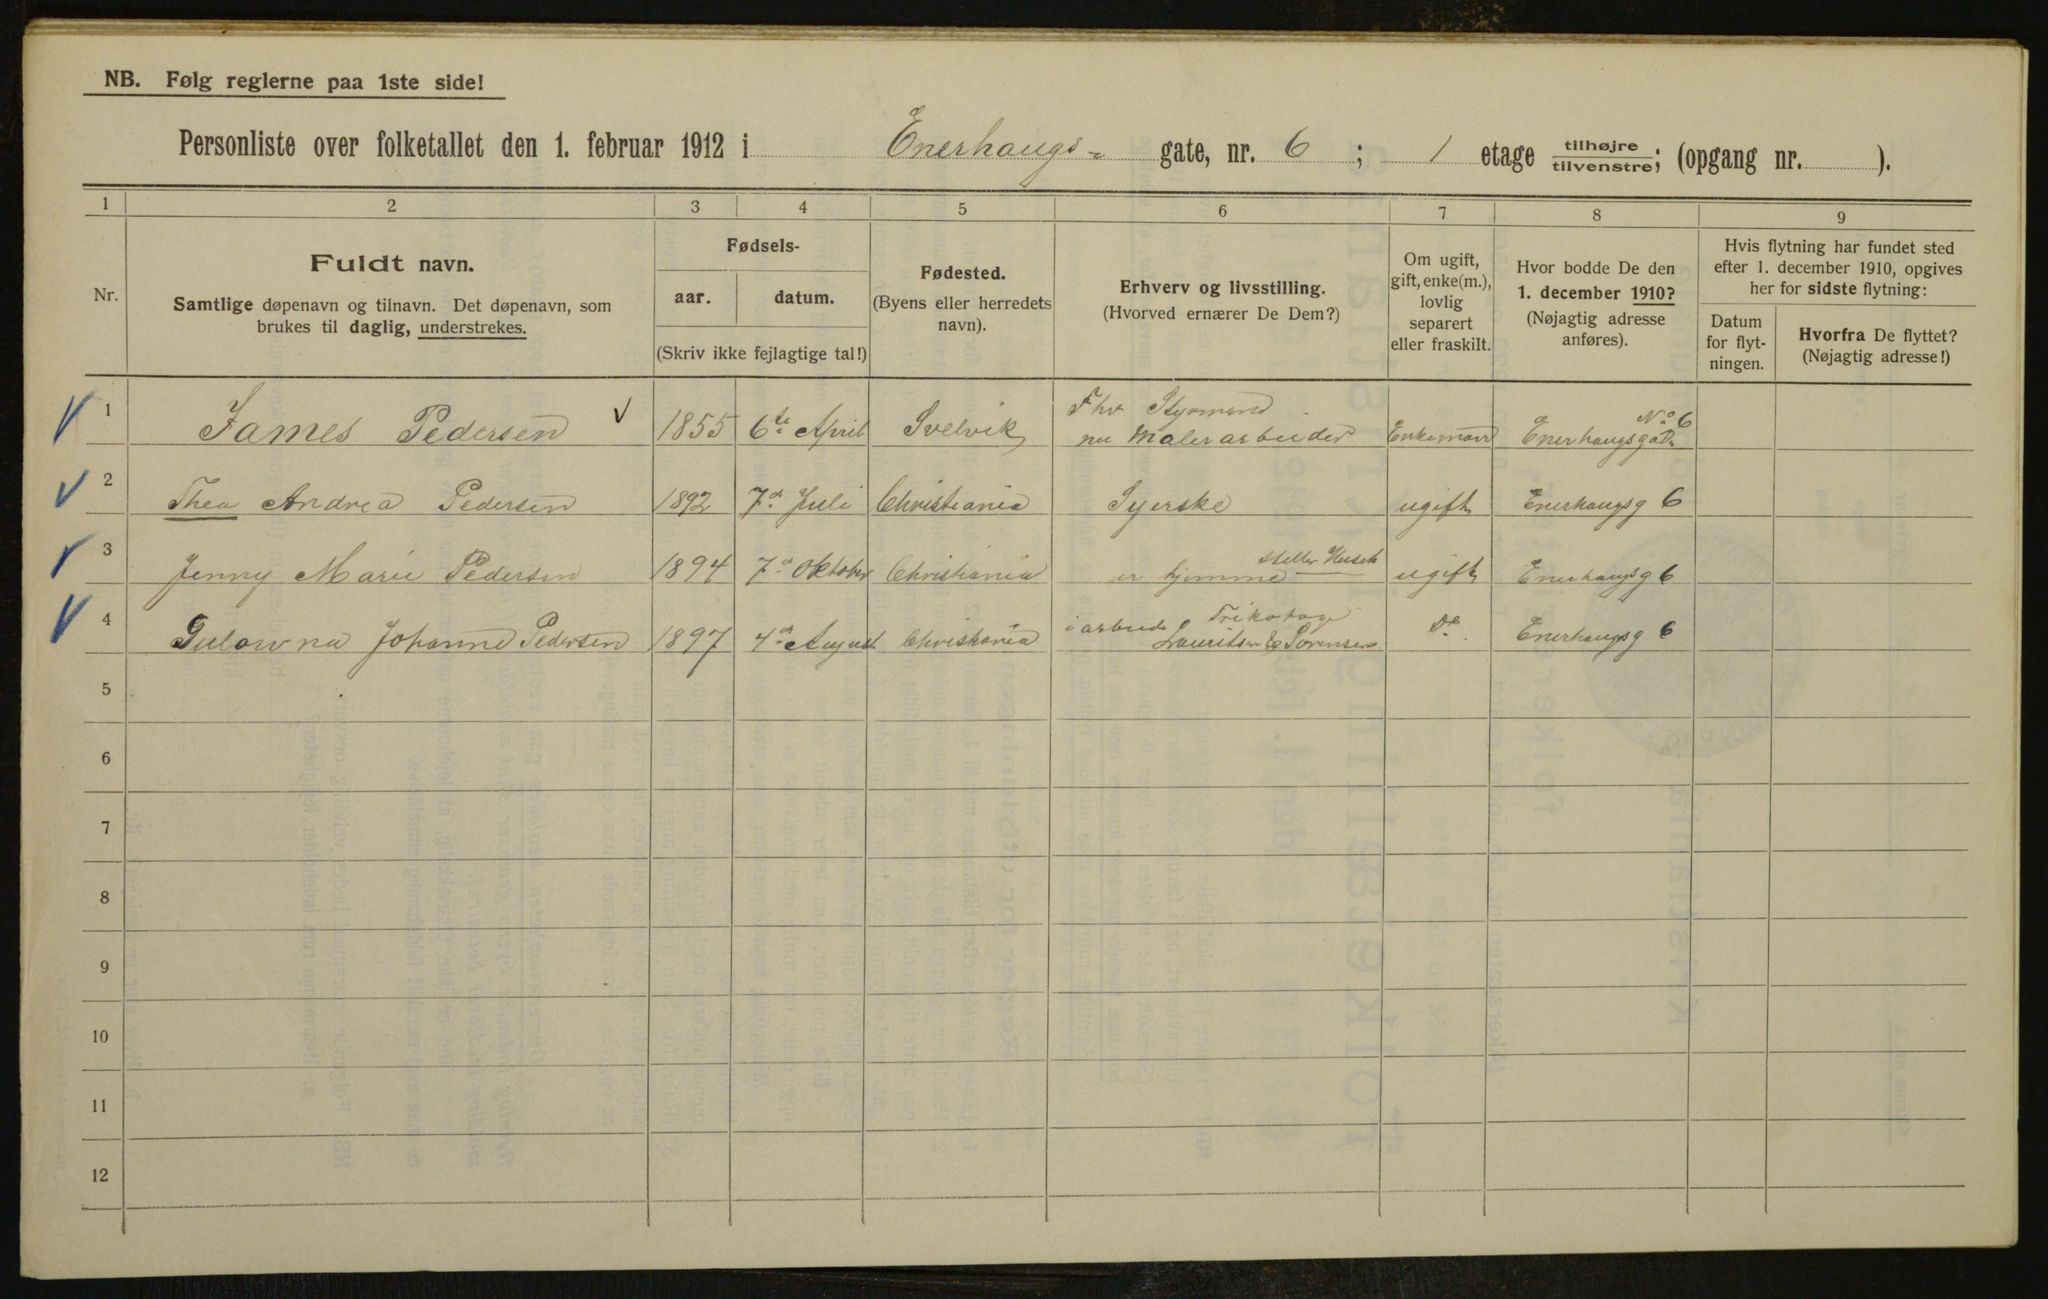 NB. Følg reglerne paa 1ste side!
Personliste over folketallet den 1. februar 1912 i Enerhaugs- gate, nr. 6 ; 1 etage tilhøjre/tilvenstre; (opgang nr. ).
1 2 3 4 5 6 7 8 9
Nr.
Fuldt navn.
Samtlige døpenavn og tilnavn. Det døpenavn, som
brukes til daglig, understrekes.
Fødsels-
aar. datum.
(Skriv ikke fejlagtige tal!)
Fødested.
(Byens eller herredets
navn).
Erhverv og livsstilling.
(Hvorved ernærer De Dem?)
Om ugift,
gift, enke(m.),
lovlig
separert
eller fraskilt.
Hvor bodde De den
1. december 1910?
(Nøjagtig adresse
anføres).
Hvis flytning har fundet sted
efter 1. december 1910, opgives
her for sidste flytning:
Datum
for flyt-
ningen.
Hvorfra De flyttet?
(Nøjagtig adresse!)
Fhv Styrmand No 6
1 James Pedersen 1855 6te April Svelvik nu Malerarbeider Enkemand Enerhaugsgad.
2 Thea Andrea Pedersen 1892 7de Juli Christiania Syerske ugift Enerhaugsg 6
steller Huset
3 Jenny Marie Pedersen 1894 7de Oktober Christiania er hjemme ugift Enerhaugsg 6
i arbeide Trikotage
4 Johanne Pedersen 1897 4de August Christiania Lauritsen & Sørensen do Enerhaugsg 6
5
6
7
8
9
10
11
12